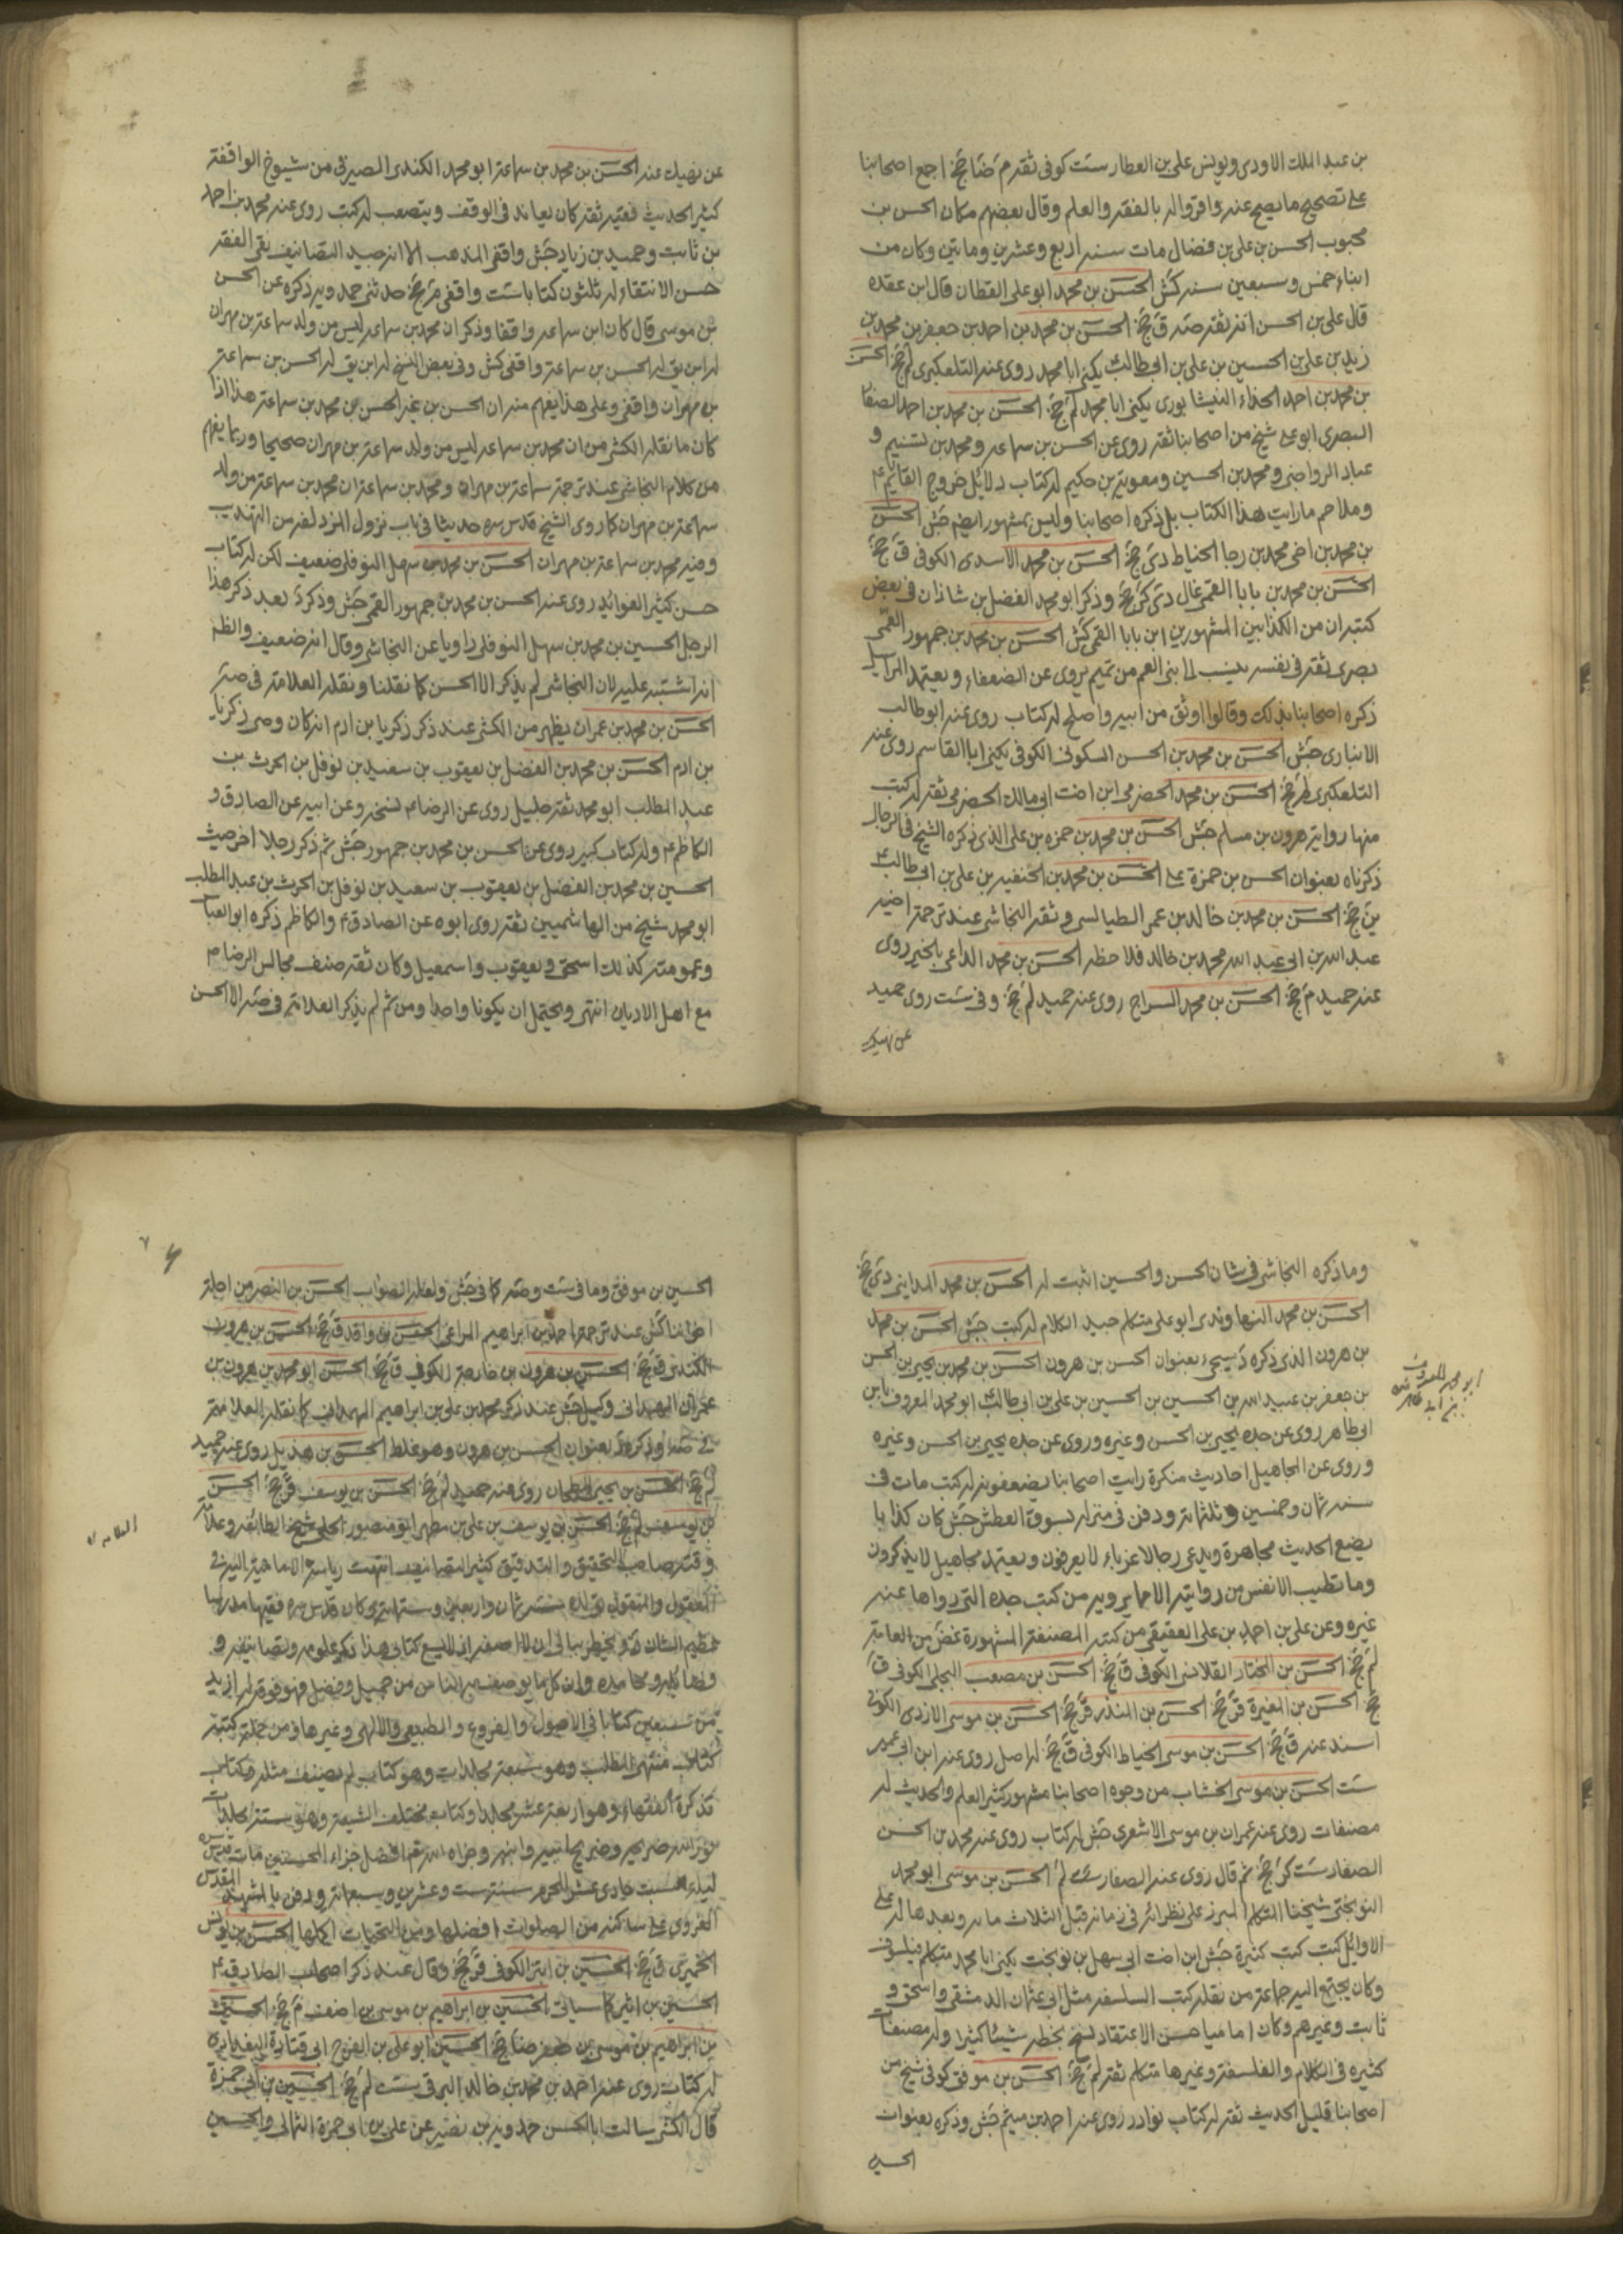 بن عبد الملك الاودى ويونس على بن العطار ست كوفى ثقة م ضا جخ اجمع اصحابنا
على تصحيح ما يصح عنه واقروا له بالفقه والعلم وقال بعضهم مكان الحسن بن
محبوب الحسن بن على بن فضال مات سنة اربع وعشرين ومأتين وكان من
ابناء خمس وسبعين سنة كش الحسن بن محمد ابو على القطان قال ابن عقده
قال على بن الحسن انه ثقة صه ق جخ الحسن بن محمد بن احمد بن جعفر بن محمد بن
زيد بن على بن الحسين بن على بن ابى طالب يكنى ابا محمد روى عنه التلعكبرى لم جخ الحسن
بن محمد بن احمد الحذاء النيشابورى يكنى ابا محمد لم جخ الحسن بن محمد بن احمد الصفار
البصرى ابو على شيخ من اصحابنا ثقة روى عن الحسن بن سماعه ومحمد بن تسنيم و
عباد الرواجنى ومحمد بن الحسين ومعوية بن حكيم له كتاب دلائل خروج القائم ع
وملاحم ما رايت هذا الكتاب بل ذكره اصحابنا وليس بمشهور ايضم جش الحسن
بن محمد بن اخى محمد بن رجا الحناط دى جخ الحسن بن محمد الاسدى الكوفى ق جخ
الحسن بن محمد بن بابا القمى غال دى كر جخ وذكر ابو محمد الفضل بن شاذان فى بعض
كتبه ان من الكذابين المشهورين ابن بابا القمى كش الحسن بن محمد بن جمهور القمى
بصرى ثقة فى نفسه ينسب الى بنى العم من تميم يروى عن الضعفاء ويعتمد المراسيل
ذكره اصحابنا بذلك وقالوا اوثق من ابيه واصلح له كتاب روى عنه ابو طالب
الانبارى جش الحسن بن محمد بن الحسن السكونى الكوفى يكنى ابا القاسم روى عنه
التلعكبرى لم جخ الحسن بن محمد الحضرمى ابن اخت ابى مالك الحضرمى ثقة له كتب
منها رواية هرون بن مسلم جش الحسن بن محمد بن حمزه بن على الذى ذكره الشيخ فى الرجال
ذكرناه بعنوان الحسن بن حمزة على الحسن بن محمد بن الحنفيه بن على بن ابى طالب ع
ين جخ الحسن بن محمد بن خالد بن عمر الطيالسى وثقه النجاشى عند ترجمة اخيه
عبد الله بن ابى عبد الله محمد بن خالد فلاحظه الحسن بن محمد الداعى بالخير روى
عنه حميد م جخ الحسن بن محمد السراج روى عنه حميد لم جخ وفى ست روى حميد
عن نهيك
عن نهيك عنه الحسن بن محمد بن سماعة ابو محمد الكندى الصيرفى من شيوخ الواقفة
كثير الحديث فقيه ثقة كان يعاند فى الوقف ويتعصب له كتب روى عنه محمد بن احمد
بن ثابت وحميد بن زياد جش واقفى المذهب الا انه جيد التصانيف نقى الفقه
حسن الانتقاء له ثلثون كتابا ست واقفى م جخ حدثنى حمدويه ذكره عن الحسن
بن موسى قال كان ابن سماعه واقفا وذكر ان محمد بن سماعه ليس من ولد سماعة بن مهران
له ابن يق له الحسن بن سماعة واقفى كش وفى بعض النسخ له ابن يق له الحسن بن سماعة
بن مهران واقفى وعلى هذا يفهم منه ان الحسن بن غير الحسن بن محمد بن سماعة هذا اذا
كان ما نقله الكشى من ان محمد بن سماعه ليس من ولد سماعة بن مهران صحيحا وربما يفهم
من كلام النجاشى عند ترجمة سماعة بن مهران ومحمد بن سماعة ان محمد بن سماعة من ولد
سماعة بن مهران كما روى الشيخ قدس سره حديثا فى باب نزول المزدلفه من التهذيب
وفيه محمد بن سماعة بن مهران الحسن بن محمد بن سهل النوفلى ضعيف لكن له كتاب
حسن كثير الفوائد روى عنه الحسن بن محمد بن جمهور القمى جش وذكر د بعد ذكر هذا
الرجل الحسين بن محمد بن سهل النوفلى راويا عن النجاشى وقال انه ضعيف والظ
انه اشتبه عليه لان النجاشى لم يذكر الا الحسن كما نقلنا ونقله العلامة فى صه
الحسن بن محمد بن عمران يظهر من الكشى عند ذكر زكريا بن ادم انه كان وصى زكريا
بن ادم الحسن بن محمد بن الفضل بن يعقوب بن سعيد بن نوفل بن الحرث بن
عبد المطلب ابو محمد ثقة جليل روى عن الرضا ع نسخه وعن ابيه عن الصادق و
الكاظم ع وله كتاب كبير روى عن الحسن بن محمد بن جمهور جش ثم ذكر رجلا اخر حيث
الحسين بن محمد بن الفضل بن يعقوب بن سعيد بن نوفل بن الحرث بن عبد المطلب
ابو محمد شيخ من الهاشميين ثقة روى ابوه عن الصادق ع والكاظم ذكره ابو العباس
وعمومته كذلك اسحق ويعقوب واسمعيل وكان ثقة صنف مجالس الرضا م
مع اهل الاديان انتهى ويحتمل ان يكونا واحدا ومن ثم لم يذكر العلامة فى صه الا الحسن
وما ذكره النجاشى فى شان الحسن والحسين اثبت له الحسن بن محمد المداينى دى جخ
الحسن بن محمد النهاوندى ابو على متكلم جيد الكلام له كتب جش الحسن بن محمد
بن هرون الذى ذكره د سيجىء بعنوان الحسن بن هرون الحسن بن محمد بن يحيى بن الحسن
بن جعفر بن عبيد الله بن الحسين بن الحسين بن على بن ابى طالب ابو محمد المعروف بابن
ابى طاهر روى عن جده يحيى بن الحسن وغيره وروى عن جده يحيى بن الحسن وغيره
وروى عن المجاهيل احاديث منكرة رايت اصحابنا يضعفونه له كتب مات فى
سنة ثمان وخمسين وثلثمائة ودفن فى منزله بسوق العطش جش كان كذابا
يضع الحديث مجاهرة ويدعى رجالا غرباء لا يعرفون ويعتمد مجاهيل لا يذكرون
وما تطيب الانفس من روايته الا ما يرويه من كتب جده التى رواها عنه
غيره وعن على بن احمد بن على العقيقى من كتبه المصنفة المشهورة غض من العامة
لم جخ الحسن بن المختار القلانسى الكوفى ق جخ الحسن بن مصعب البجلى الكوفى ق
جخ الحسن بن المغيرة قر جخ الحسن بن المنذر قر جخ الحسن بن موسى الازدى الكوفى
اسند عنه ق جخ الحسن بن موسى الحناط الكوفى ق جخ له اصل روى عنه ابن ابى عمير
ست الحسن بن موسى الخشاب من وجوه اصحابنا مشهور كثير العلم والحديث له
مصنفات روى عنه عمران بن موسى الاشعرى جش له كتاب روى عنه محمد بن الحسن
الصفار ست كر جخ ثم قال روى عنه الصفار لم الحسن بن موسى ابو محمد
النوبختى شيخنا المتكلم المبرز على نظرائه فى زمانه قبل الثلاث مائه وبعدها له على
الاوائل كتب كتب كثيرة جش ابن اخت ابى سهل بن نوبخت يكنى ابا محمد متكلم فيلسوف
وكان يجتمع اليه جماعة من نقله كتب السلسفه مثل ابى عثمان الدمشقى واسحق و
ثابت وغيرهم وكان اماميا حسن الاعتقاد نسخ بخطه شيئا كثيرا وله مصنفات
كثيره فى الكلام والفلسفة وغيرها متكلم ثقة لم جخ الحسن بن موفق كوفى شيخ من
اصحابنا قليل الحديث ثقة له كتاب نوادر روى عنه احمد بن ميثم جش وذكره بعنوان
الحسين
ابو محمد المعروف
بابن ابى طاهر
الحسين بن موفق وما فى ست وصه كما فى جش ولعله الصواب الحسن بن النضر من اجلة
اخواننا كش عند ترجمة احمد بن ابراهيم المراغى الحسن بن واقد ق جخ الحسن بن هرون
الكندى ق جخ الحسن بن هرون بن خارجة الكوفى ق جخ الحسن ابو محمد بن هرون بن
عمران الهمدانى وكيل جش عند ذكر محمد بن على بن ابراهيم الهمدانى كما نقله العلامة
فى صه وذكره د بعنوان الحسن بن هرون وهو غلط الحسن بن هذيل روى عنه حميد
لم جخ الحسن بن يحيى الطحان روى عنه حميد لم جخ الحسن بن يوسف قر جخ الحسن
بن يوسف لم جخ الحسن بن يوسف بن على بن مطهر ابو منصور الحلى شيخ الطائفه وعلامة
وقته صاحب التحقيق والتدقيق كثير التصانيف انتهت رياسة الامامية اليه فى
المعقول والمنقول تولده سنة ثمان واربعين وستمائة وكان قدس سره فقيها مدرسا
عظيم الشان د ويخطر ببالى ان لا اصفه اذ لا يسع كتابى هذا ذكر علومه وتصانيفه و
فضائله ومحامده وان كل ما يوصف به الناس من جميل وفضل فهو فوقه له ازيد
من سبعين كتابا فى الاصول والفروع والطبيعى والالهى وغيرها ومن جملة كتبه
كتاب منتهى المطلب وهو سبعة مجلدات وهو كتاب لم يصنف مثله وكتاب
تذكرة الفقهاء وهو اربعة عشر مجلدا وكتاب مختلف الشيعة وهو ستة مجلدات
نور الله ضريحه وضريح ابيه وابنه وجزاه الله افضل جزاء المحسنين مات قدس سره
ليلة السبت حادى عشر المحرم سنة ست وعشرين وسبعمائة ودفن بالمشهد المقدس
الغروى على ساكنه من الصلوات افضلها ومن التحيات اكملها الحسن بن يونس
الحميرى ق جخ الحسين بن ابتر الكوفى قر جخ وقال عند ذكر اصحاب الصادق ع
الحسين بن اثير كما سياتى الحسين بن ابراهيم بن موسى بن احنف م جخ الحسين
بن ابراهيم بن موسى بن جعفر ضا جخ الحسين ابو على بن الفرج ابى قتادة البغدادى
له كتاب روى عنه احمد بن محمد بن خالد البرقى ست لم جخ الحسين بن ابى حمزة
قال الكشى سالت ابا الحسن حمدويه بن نصير عن على بن ابى حمزة الثمالى والحسين